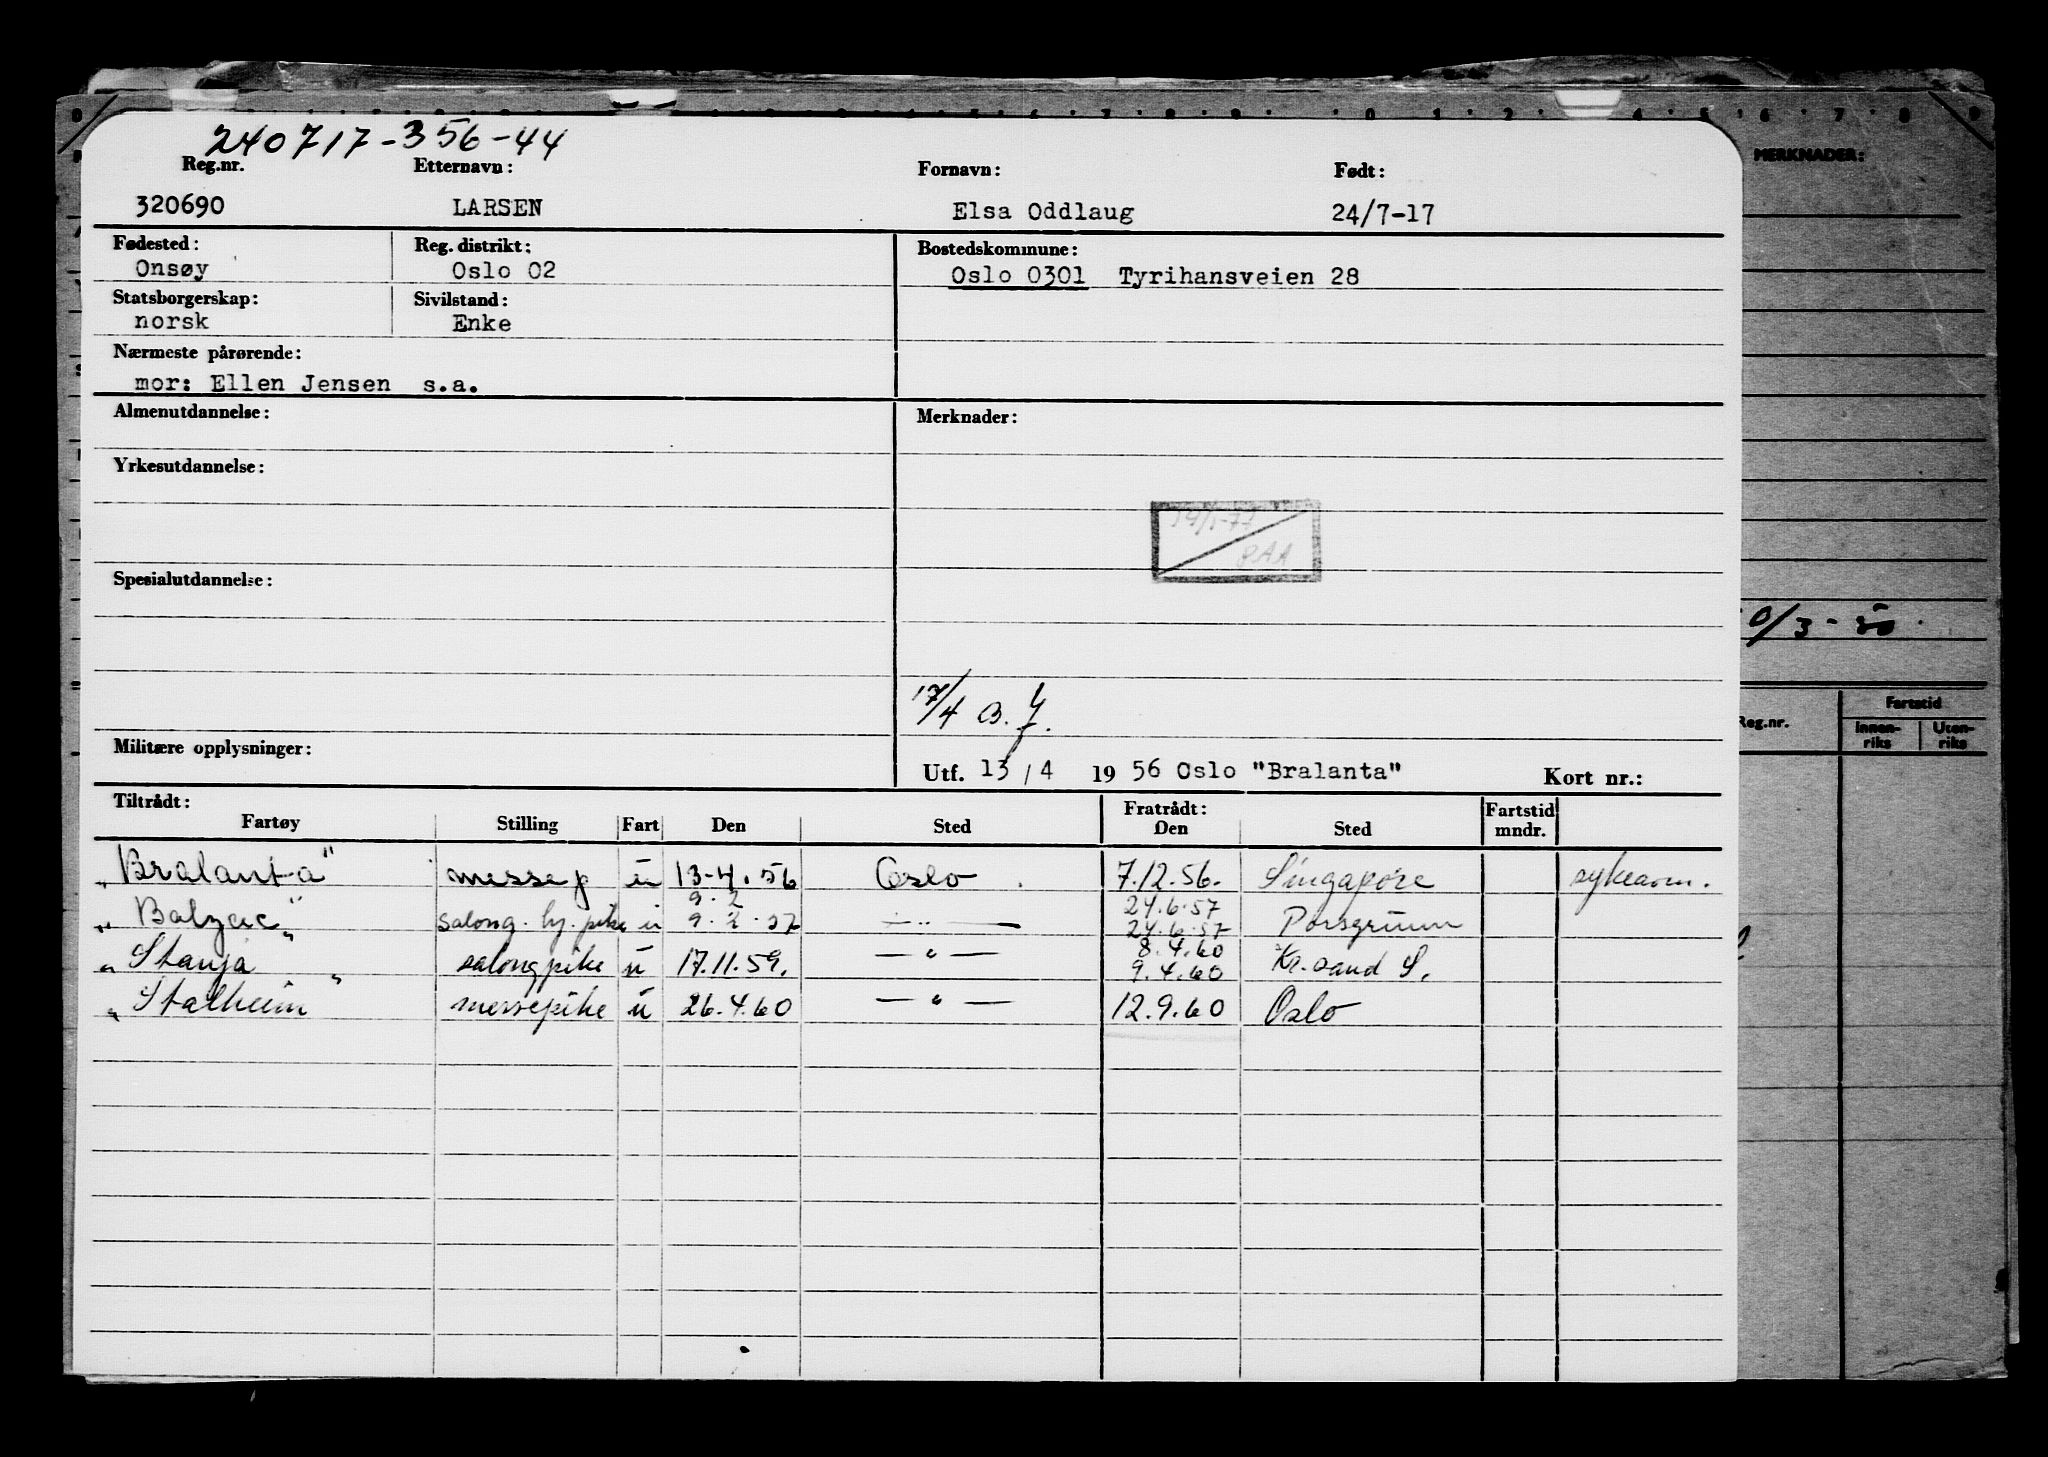 240717-356-44
Reg.nr. Etternavn: Fornavn: Født:
320690 LARSEN Elsa Oddlaug 24/7-17
Fødested: Reg. distrikt: Bostedskommune:
Onsøy Oslo 02 Oslo 0301 Tyrihansveien 28
Statsborgerskap: Sivilstand:
norsk Enke
Nærmeste pårørende:
mor: Ellen Jensen s.a.
Almenutdannelse: Merknader:
Yrkesutdannelse:
Spesialutdannelse:
17/4
Militære opplysninger:
Utf. 13/4 1956 Oslo "Bralanta" Kort nr.:
Tiltrådt: Fratrådt: Fartstid
Fartøy Stilling Fart Den Sted Den Sted mndr.
"Bralanta" messep ü 13-4.56 Oslo 7.12.56. Singapore sykeavm.
9.2 24.6.57
"Balzac" salong.hj.pike ü 9.2.57 — " — 24.6.57 Porsgrunn
8.4.60
"Stanja" salongpike ü 17.11.59. — " — 9.4.60 Kr.sand S.
"Stalheim" messepike ü 26.4.60 — " — 12.9.60 Oslo
MERKNADER:
Reg.nr. Fartstid
Innen-riks Uten-riks